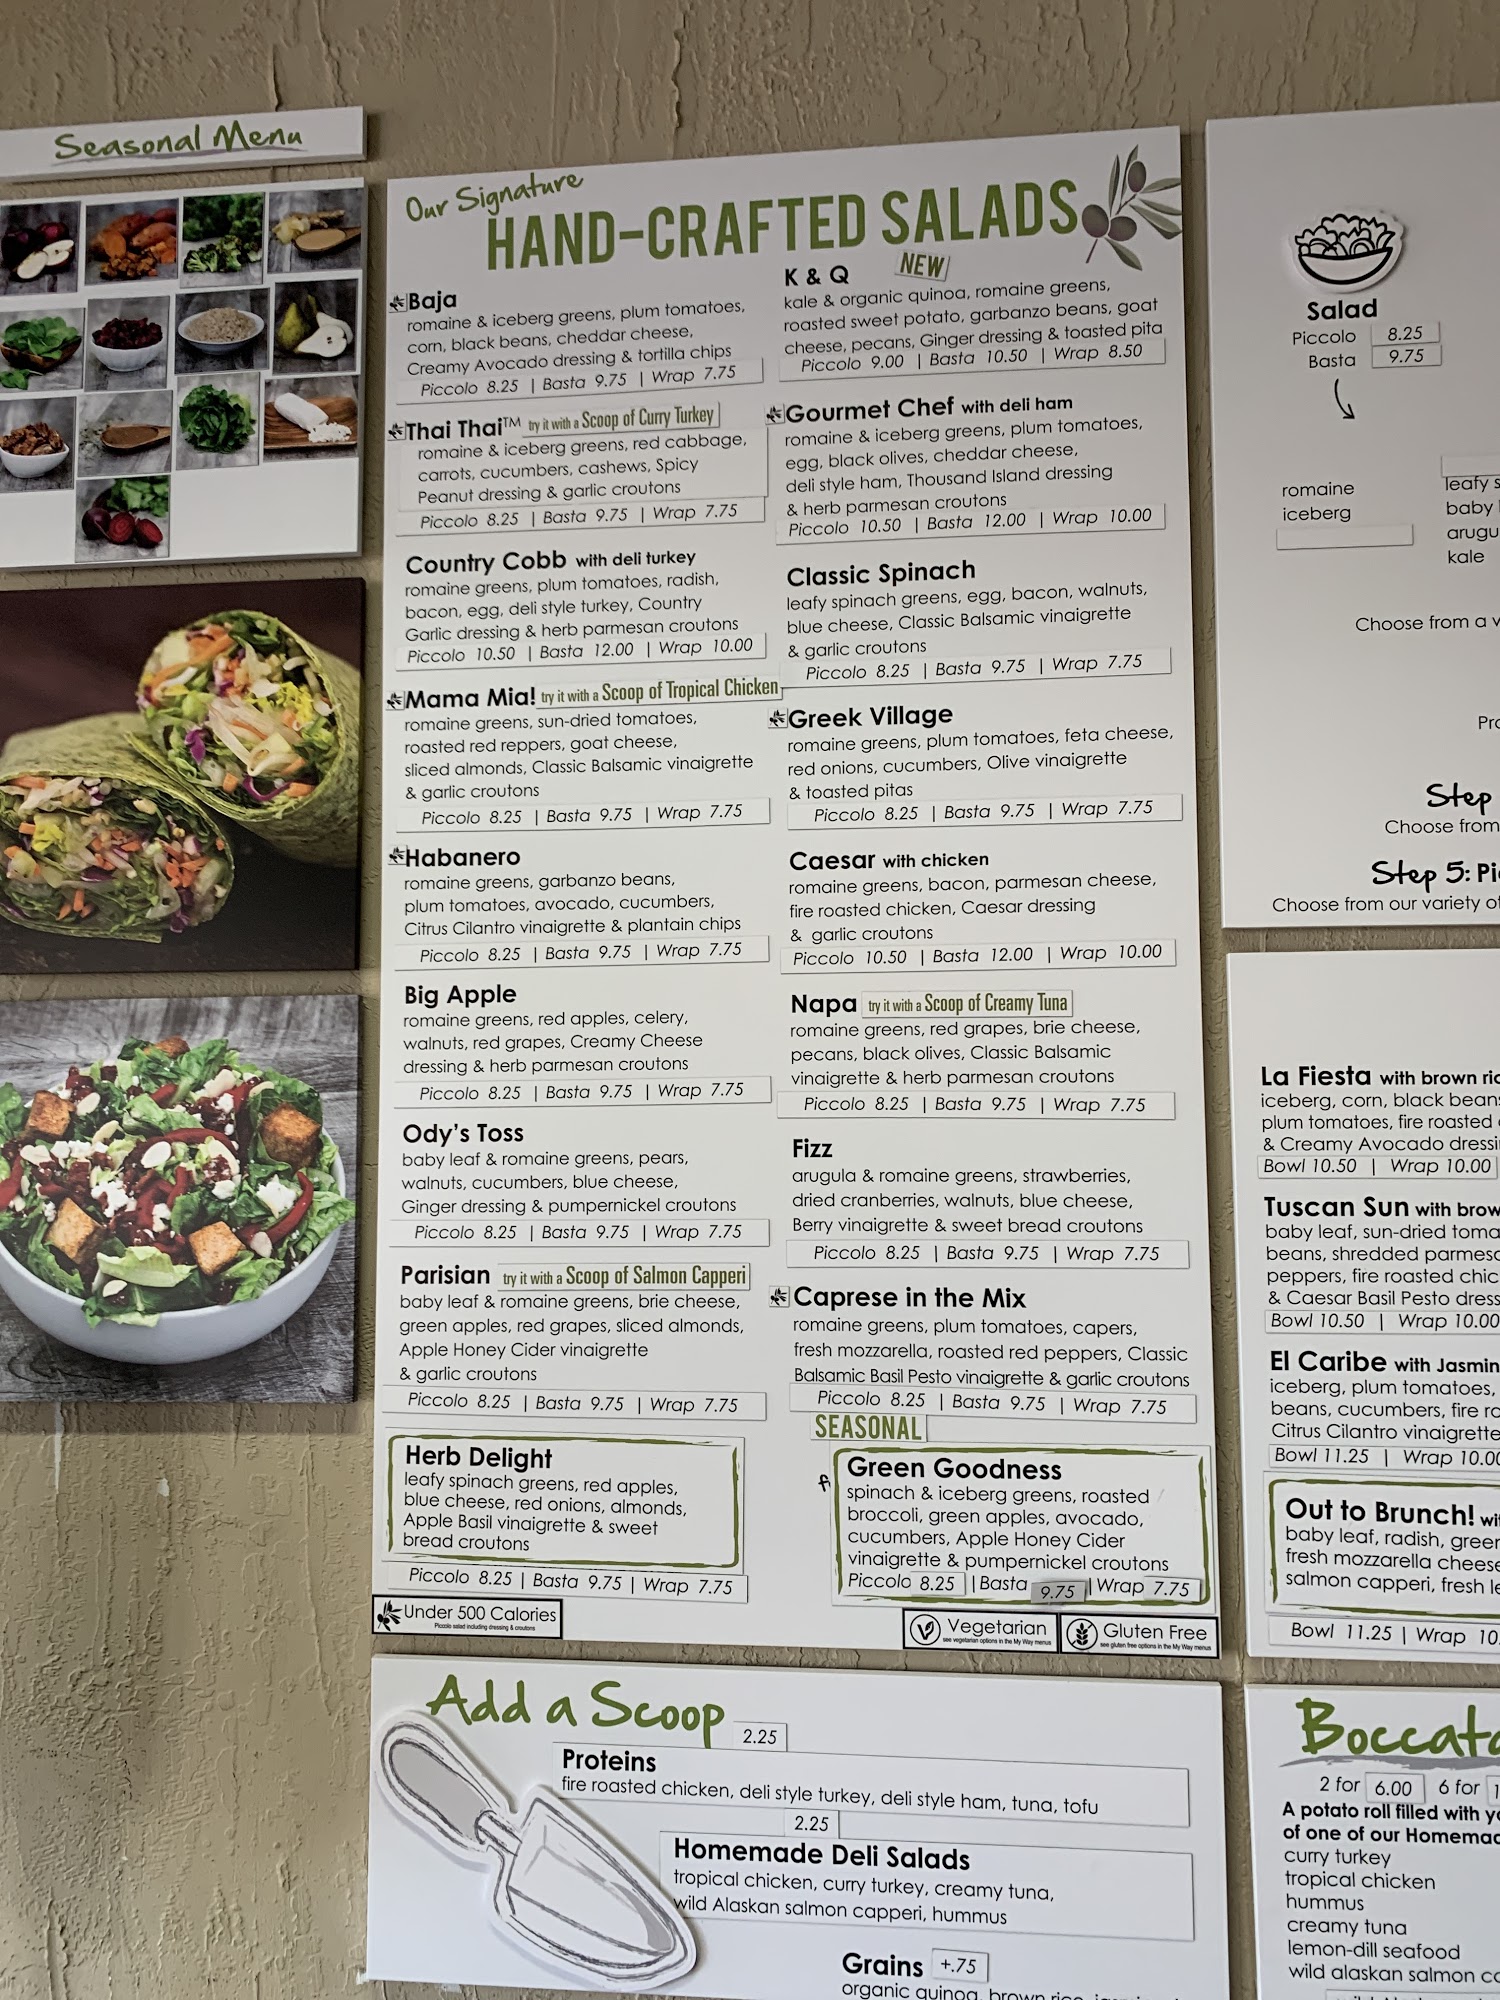 Seasonal Menu
Our Signature
HAND-CRAFTED SALADS
Baja
romaine & iceberg greens, plum tomatoes,
corn, black beans, cheddar cheese,
Creamy Avocado dressing & tortilla chips
Piccolo 8.25 | Basta 9.75 | Wrap 7.75
Thai Thai™ try it with a Scoop of Curry Turkey
romaine & iceberg greens, red cabbage,
carrots, cucumbers, cashews, Spicy
Peanut dressing & garlic croutons
Piccolo 8.25 | Basta 9.75 | Wrap 7.75
Country Cobb with deli turkey
romaine greens, plum tomatoes, radish,
bacon, egg, deli style turkey, Country
Garlic dressing & herb parmesan croutons
Piccolo 10.50 | Basta 12.00 | Wrap 10.00
Mama Mia! try it with a Scoop of Tropical Chicken
romaine greens, sun-dried tomatoes,
roasted red reppers, goat cheese,
sliced almonds, Classic Balsamic vinaigrette
& garlic croutons
Piccolo 8.25 | Basta 9.75 | Wrap 7.75
Habanero
romaine greens, garbanzo beans,
plum tomatoes, avocado, cucumbers,
Citrus Cilantro vinaigrette & plantain chips
Piccolo 8.25 | Basta 9.75 | Wrap 7.75
Big Apple
romaine greens, red apples, celery,
walnuts, red grapes, Creamy Cheese
dressing & herb parmesan croutons
Piccolo 8.25 | Basta 9.75 | Wrap 7.75
Ody's Toss
baby leaf & romaine greens, pears,
walnuts, cucumbers, blue cheese,
Ginger dressing & pumpernickel croutons
Piccolo 8.25 | Basta 9.75 | Wrap 7.75
Parisian try it with a Scoop of Salmon Capperi
baby leaf & romaine greens, brie cheese,
green apples, red grapes, sliced almonds,
Apple Honey Cider vinaigrette
& garlic croutons
Piccolo 8.25 | Basta 9.75 | Wrap 7.75
Herb Delight
leafy spinach greens, red apples,
blue cheese, red onions, almonds,
Apple Basil vinaigrette & sweet
bread croutons
Piccolo 8.25 | Basta 9.75 | Wrap 7.75
Under 500 Calories
Piccolo salad including dressing & croutons
K & Q NEW
kale & organic quinoa, romaine greens,
roasted sweet potato, garbanzo beans, goat
cheese, pecans, Ginger dressing & toasted pita
Piccolo 9.00 | Basta 10.50 | Wrap 8.50
Gourmet Chef with deli ham
romaine & iceberg greens, plum tomatoes,
egg, black olives, cheddar cheese,
deli style ham, Thousand Island dressing
& herb parmesan croutons
Piccolo 10.50 | Basta 12.00 | Wrap 10.00
Classic Spinach
leafy spinach greens, egg, bacon, walnuts,
blue cheese, Classic Balsamic vinaigrette
& garlic croutons
Piccolo 8.25 | Basta 9.75 | Wrap 7.75
Greek Village
romaine greens, plum tomatoes, feta cheese,
red onions, cucumbers, Olive vinaigrette
& toasted pitas
Piccolo 8.25 | Basta 9.75 | Wrap 7.75
Caesar with chicken
romaine greens, bacon, parmesan cheese,
fire roasted chicken, Caesar dressing
& garlic croutons
Piccolo 10.50 | Basta 12.00 | Wrap 10.00
Napa try it with a Scoop of Creamy Tuna
romaine greens, red grapes, brie cheese,
pecans, black olives, Classic Balsamic
vinaigrette & herb parmesan croutons
Piccolo 8.25 | Basta 9.75 | Wrap 7.75
Fizz
arugula & romaine greens, strawberries,
dried cranberries, walnuts, blue cheese,
Berry vinaigrette & sweet bread croutons
Piccolo 8.25 | Basta 9.75 | Wrap 7.75
Caprese in the Mix
romaine greens, plum tomatoes, capers,
fresh mozzarella, roasted red peppers, Classic
Balsamic Basil Pesto vinaigrette & garlic croutons
Piccolo 8.25 | Basta 9.75 | Wrap 7.75
SEASONAL
Green Goodness
spinach & iceberg greens, roasted
broccoli, green apples, avocado,
cucumbers, Apple Honey Cider
vinaigrette & pumpernickel croutons
Piccolo 8.25 | Basta 9.75 | Wrap 7.75
Vegetarian
see vegetarian options in the My Way menus
Gluten Free
see gluten free options in the My Way menus
Add a Scoop 2.25
Proteins
fire roasted chicken, deli style turkey, deli style ham, tuna, tofu
2.25
Homemade Deli Salads
tropical chicken, curry turkey, creamy tuna,
wild Alaskan salmon capperi, hummus
Grains +.75
organic quinoa, brown rice,
Salad
Piccolo 8.25
Basta 9.75
romaine
iceberg
leafy
baby
kale
Choose from a
Step
Choose from
Step 5:
Choose from our variety
La Fiesta with brown
iceberg, corn, black
plum tomatoes, fire roasted
& Creamy Avocado
Bowl 10.50 | Wrap 10.00
Tuscan Sun with
baby leaf, sun-dried
beans, shredded
peppers, fire roasted
& Caesar Basil Pesto
Bowl 10.50 | Wrap 10.00
El Caribe with
iceberg, plum tomatoes,
beans, cucumbers, fire
Citrus Cilantro vinaigrette
Bowl 11.25 | Wrap
Out to Brunch!
baby leaf, radish,
fresh mozzarella
salmon capperi, fresh
Bowl 11.25 | Wrap
2 for 6.00 6 for
A potato roll filled with
of one of our
curry turkey
tropical chicken
hummus
creamy tuna
lemon-dill seafood
wild alaskan salmon